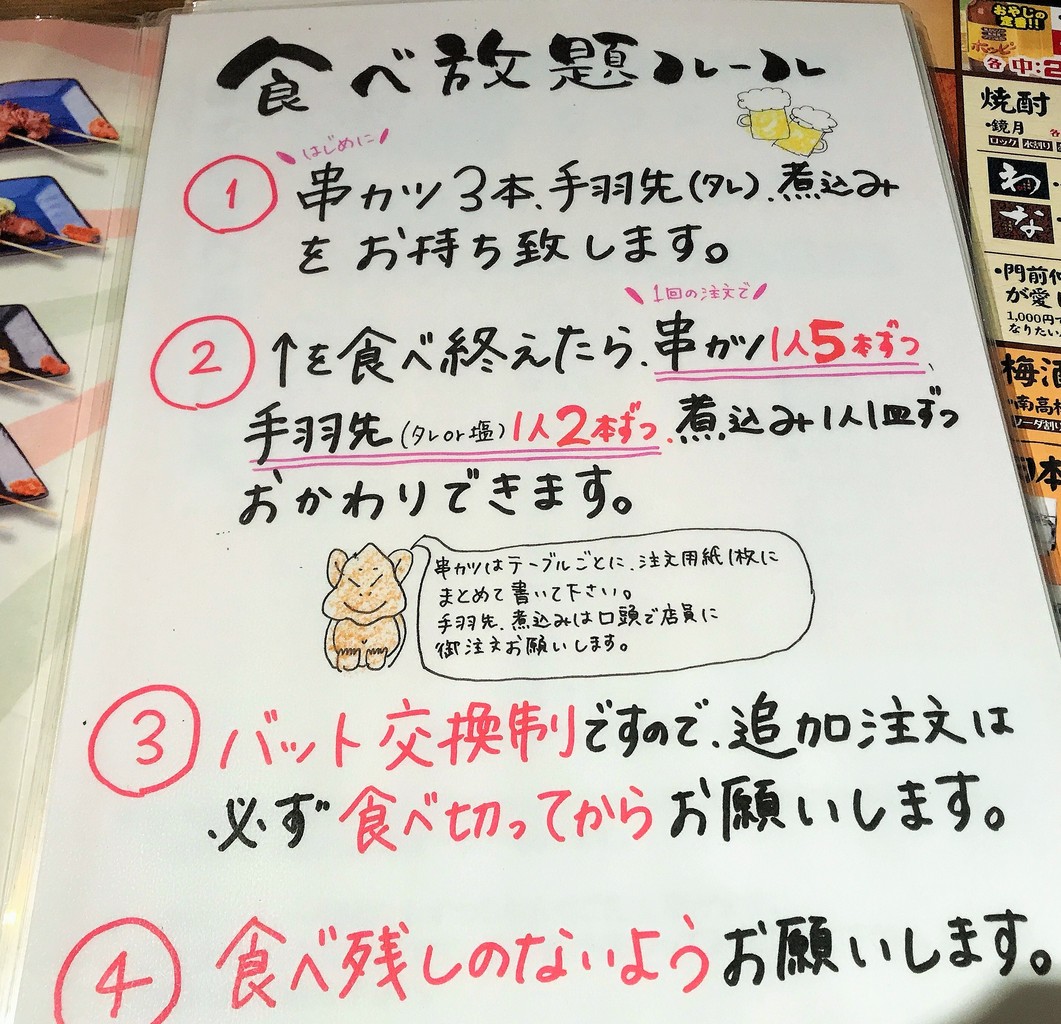 食べ放題ルール
はじめに
① 串カツ3本、手羽先(タレ)、煮込み
をお持ち致します。
1回の注文で
② ↑を食べ終えたら、串カツ1人5本ずつ、
手羽先(タレor塩)1人2本ずつ、煮込み1人1皿ずつ
おかわりできます。
串カツはテーブルごとに、注文用紙1枚に
まとめて書いて下さい。
手羽先、煮込みは口頭で店員に
御注文お願いします。
③ バット交換制ですので、追加注文は
必ず食べ切ってからお願いします。
④ 食べ残しのないようお願いします。
おやじの
定番!!
ホッピー
各 中:2
焼酎
・鏡月
ロック 水割り
わ
な
・門前仲
が愛し
1,000円で
なりたい
梅酒
南高梅
ソーダ割り
日本